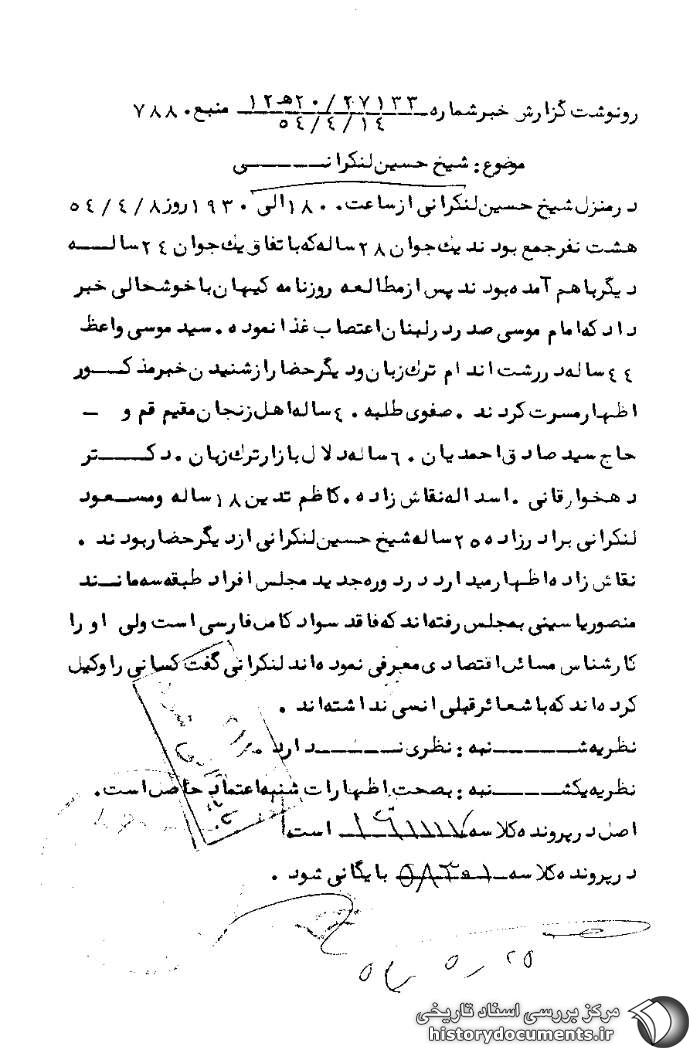 رونوشت گزارش خبر شماره ۲۷۱۳۳/۲۰هـ۱۲ منبع ۷۸۸۰
۵۴/۴/۱۴
موضوع : شیخ حسین لنکرانی
درمنزل شیخ حسین لنکرانی از ساعت ۱۸۰۰ الی ۱۹۳۰ روز ۵۴/۴/۸
هشت نفر جمع بودند یک جوان ۲۸ ساله که باتفاق یک جوان ۲۴ ساله
دیگر باهم آمده بودند پس از مطالعه روزنامه کیهان با خوشحالی خبر
داد که امام موسی صدر در لبنان اعتصاب غذا نموده . سید موسی واعظ
۴۴ ساله درشت اندام ترک زبان و دیگر حضار از شنیدن خبر مذکور
اظهار مسرت کردند . صفوی طلبه ۴۰ ساله اهل زنجان مقیم قم و -
حاج سید صادق احمدیان ۶۰ ساله دلال بازار ترک زبان . دکتر
دهخوارقانی . اسداله نقاش زاده . کاظم تدین ۱۸ ساله و مسعود
لنکرانی برادرزاده ۲۵ ساله شیخ حسین لنکرانی از دیگر حضار بودند .
نقاش زاده اظهار میدارد در دوره جدید مجلس افراد طبقه سه مانند
منصور یاسینی بمجلس رفته اند که فاقد سواد کامل فارسی است ولی او را
کارشناس مسائل اقتصادی معرفی نموده اند لنکرانی گفت کسانی را وکیل
کرده اند که با شعائر قبلی انسی نداشته اند .
نظریه شنبه : نظری ندارد .
نظریه یکشنبه : بصحت اظهارات شنبه اعتماد حاصل است .
اصل در پرونده کلاسه است
در پرونده کلاسه بایگانی شود .
۵۴/۵/۲۵
مرکز بررسی اسناد تاریخی
historydocuments.ir